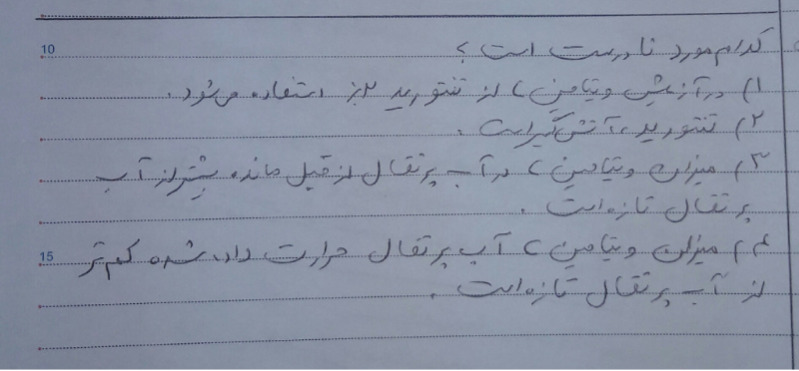 10
کدام مورد نادرست است؟
۱) در آزمایش ویتامین C از تنتورید ۲٪ استفاده می‌شود.
۲) تنتورید، آتش‌گیر است.
۳) میزان ویتامین C در آب پرتقال از قبل مانده بیشتر از آب
پرتقال تازه است.
15
۴) میزان ویتامین C آب پرتقال حرارت داده شده کم‌تر
از آب پرتقال تازه است.